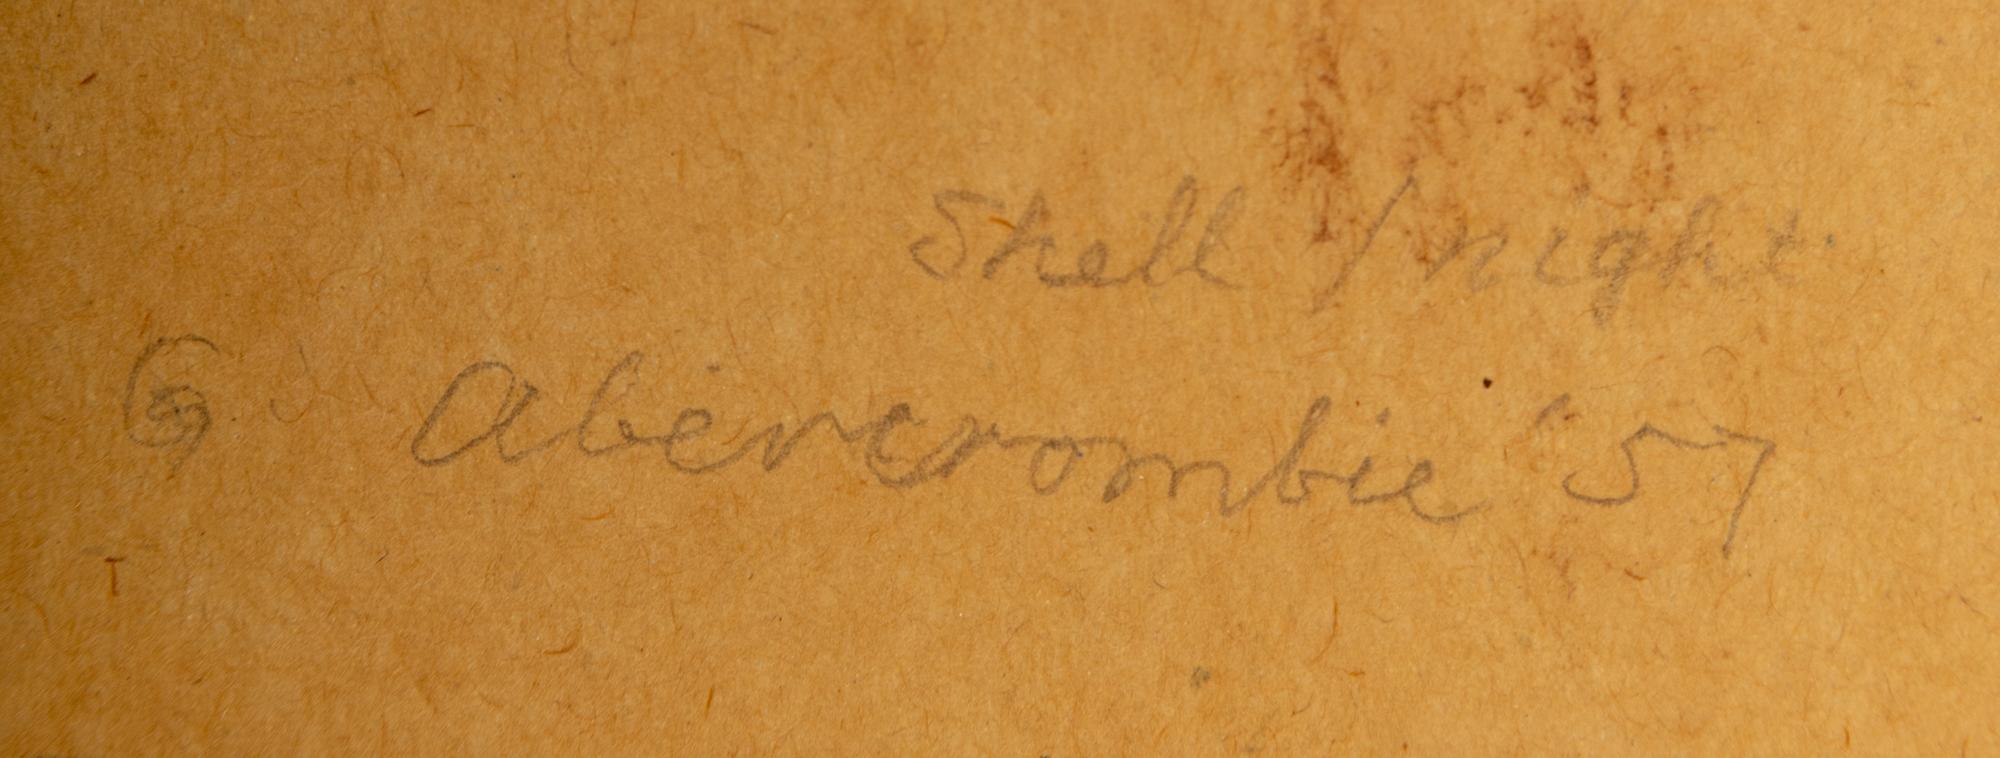 Shell / night
G. Abercrombie '57